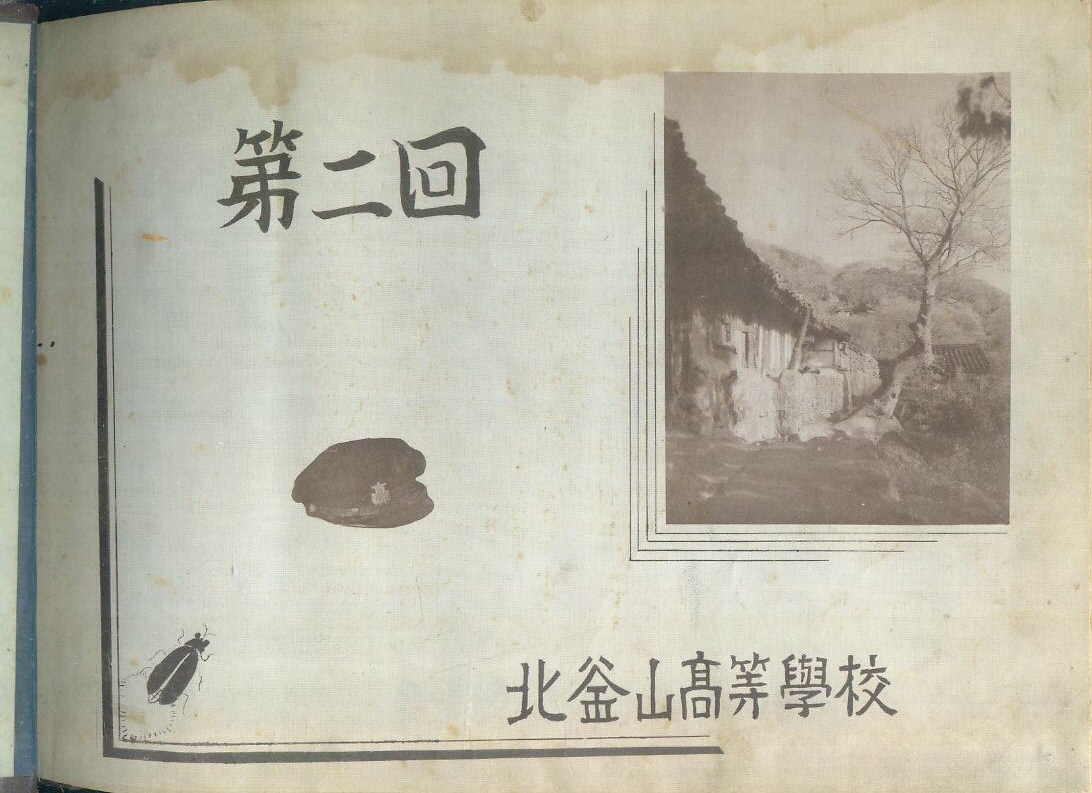 第二回
高
北釜山髙等學校